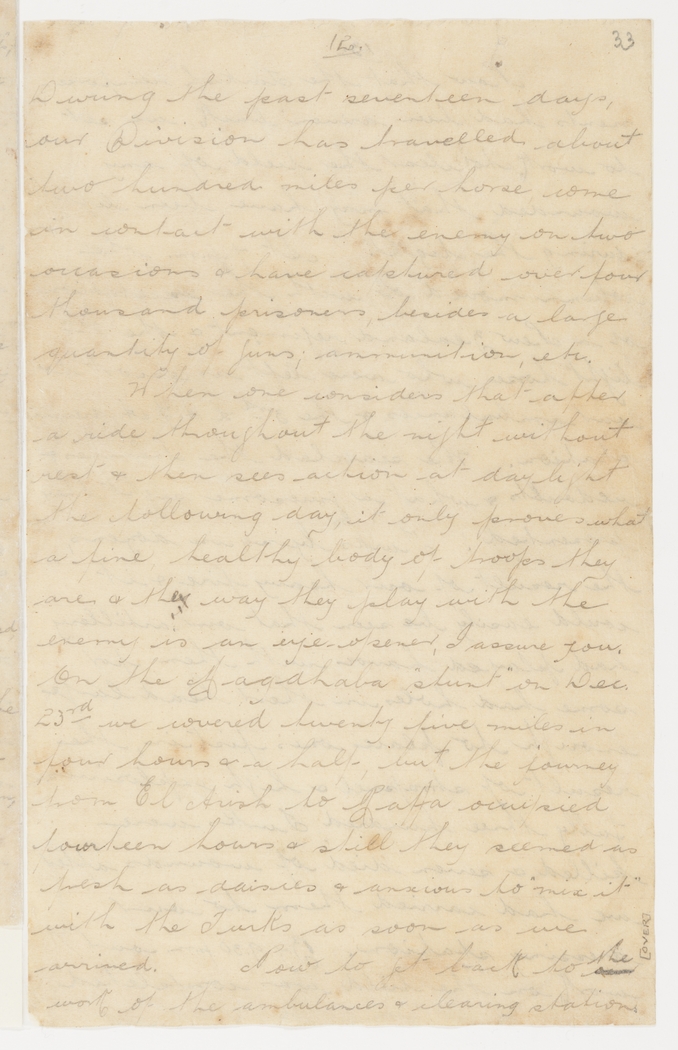 12.
33
During the past seventeen days,
our Division has travelled about
two hundred miles per horse, come
in contact with the enemy on two
occasions & have captured over four
thousand prisoners, besides a large
quantity of guns, ammunition, etc.
When one considers that after
a ride throughout the night without
rest & then sees action at daylight
the following day, it only proves what
a fine healthy body of troops they
are & the way they play with the
enemy is an eye-opener, I assure you.
On the Magdhaba "stunt" on Dec.
23rd we covered twenty five miles in
four hours & a half, but the journey
from El Arish to Raffa occupied
fourteen hours & still they seemed as
fresh as daisies & anxious to "mix it"
with the Turks as soon as we
arrived. Now to get back to the
work of the ambulances & clearing stations
[OVER]